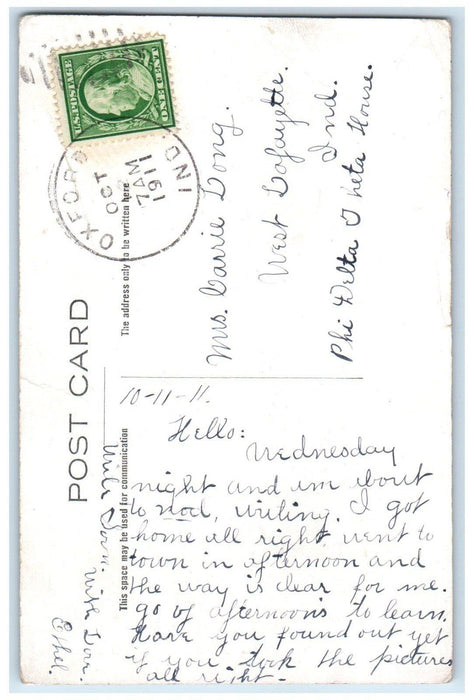 U.S. POSTAGE
ONE CENT
OXFORD
OCT
7 AM
1911
IND.
POST CARD
The address only to be written here
This space may be used for communication
Mrs. Carrie Long.
West Lafayette.
Ind.
Phi Delta Theta House.
10-11-11.
Hello:
Wednesday
night and im bout
to nod, writing. I got
home all right, went to
town in afternoon and
the way is clear for me.
go of afternoons to learn.
Have you found out yet
if you took the pictures
all right-
Write soon
with love.
Ethel.